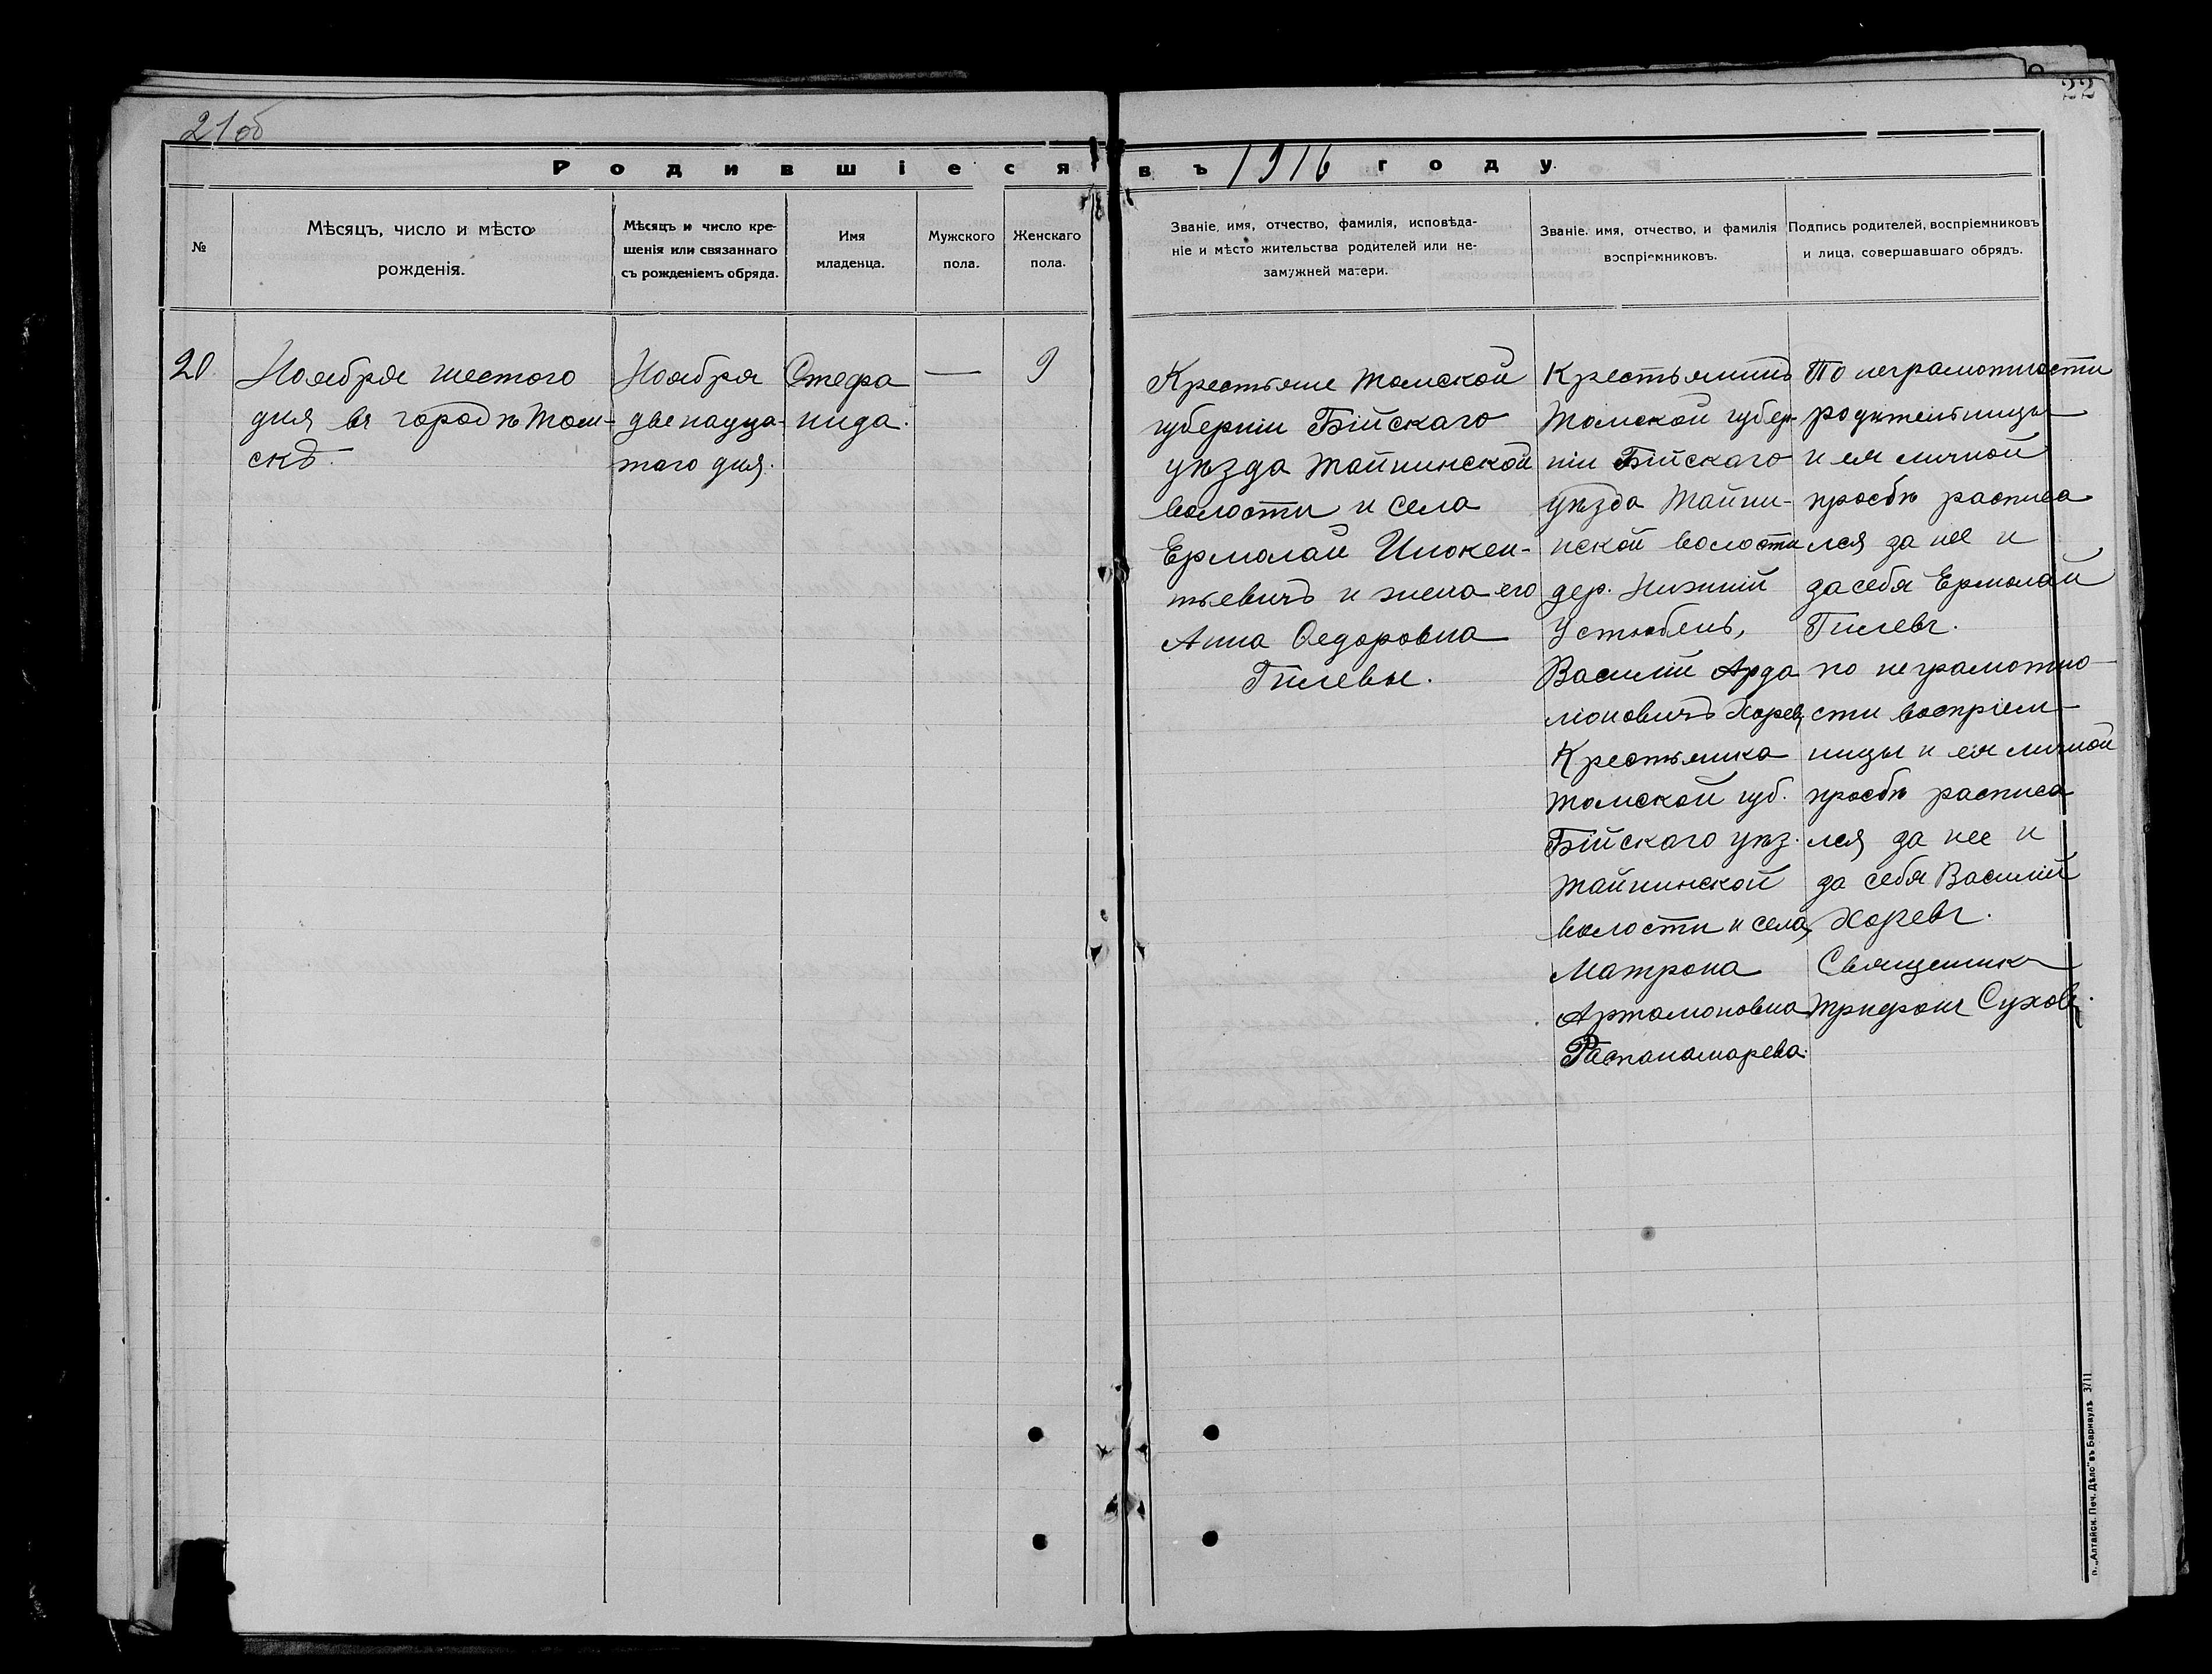 21об
22
Родившіеся въ 1916 году.
№
Мѣсяцъ, число и мѣсто
рожденія.
Мѣсяцъ и число кре-
щенія или связаннаго
съ рожденіемъ обряда.
Имя
младенца.
Мужского
пола.
Женскаго
пола.
Званіе, имя, отчество, фамилія, исповѣда-
ніе и мѣсто жительства родителей или не-
замужней матери.
Званіе, имя, отчество, и фамилія
воспріемниковъ.
Подпись родителей, воспріемниковъ
и лица, совершавшаго обрядъ.
20.
Ноября шестого
дня въ городѣ Том-
скѣ.
Ноября
двенадца-
того дня.
Стефа
нида.
—
9
Крестьяне Томской
губерніи Бійскаго
уѣзда Тайнинской
волости и села
Ермолай Инокен-
тьевичъ и жена его
Анна Ѳедоровна
Гилевы.
Крестьянинъ
Томской губер-
ніи Бійскаго
уѣзда Тайни-
нской волости
дер. Нижній
Устюбень,
Василій Арда
міоновичъ Хоревъ,
Крестьянка
Томской губ.
Бійскаго уѣз.
Тайнинской
волости и села,
Матрона
Артамоновна
Распономарева.
По неграмотности
родительницы
и ея личной
просбѣ расписа
лся за нее и
за себя Ермолай
Гилевъ.
по неграмотно-
сти воспріем-
ницы и ея личной
просбѣ расписа
лся за нее и
за себя Василій
Хоревъ.
Священникъ
Трифонъ Суховъ.
п. „Алтайск. Печ. Дѣло" въ Барнаулѣ 3/11